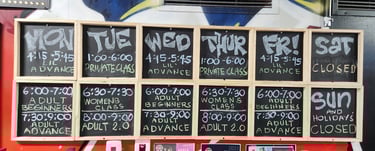 MON
4:15-5:45
LIL'
ADVANCE
TUE
6:00-7:00
PRIVATE CLASS
WED
4:15-5:45
LIL'
ADVANCE
THUR
6:00-7:00
PRIVATE CLASS
FRI
4:15-5:45
LIL'
ADVANCE
SAT
CLOSED
6:00-7:00
ADULT
BEGINNERS
7:30-9:00
ADULT
ADVANCE
6:30-7:30
WOMENS
CLASS
8:00-9:00
ADULT 2.0
6:00-7:00
ADULT
BEGINNERS
7:30-9:00
ADULT
ADVANCE
6:30-7:30
WOMENS
CLASS
8:00-9:00
ADULT 2.0
6:00-7:00
ADULT
BEGINNERS
7:30-9:00
ADULT
ADVANCE
SUN
AND
HOLIDAYS
CLOSED